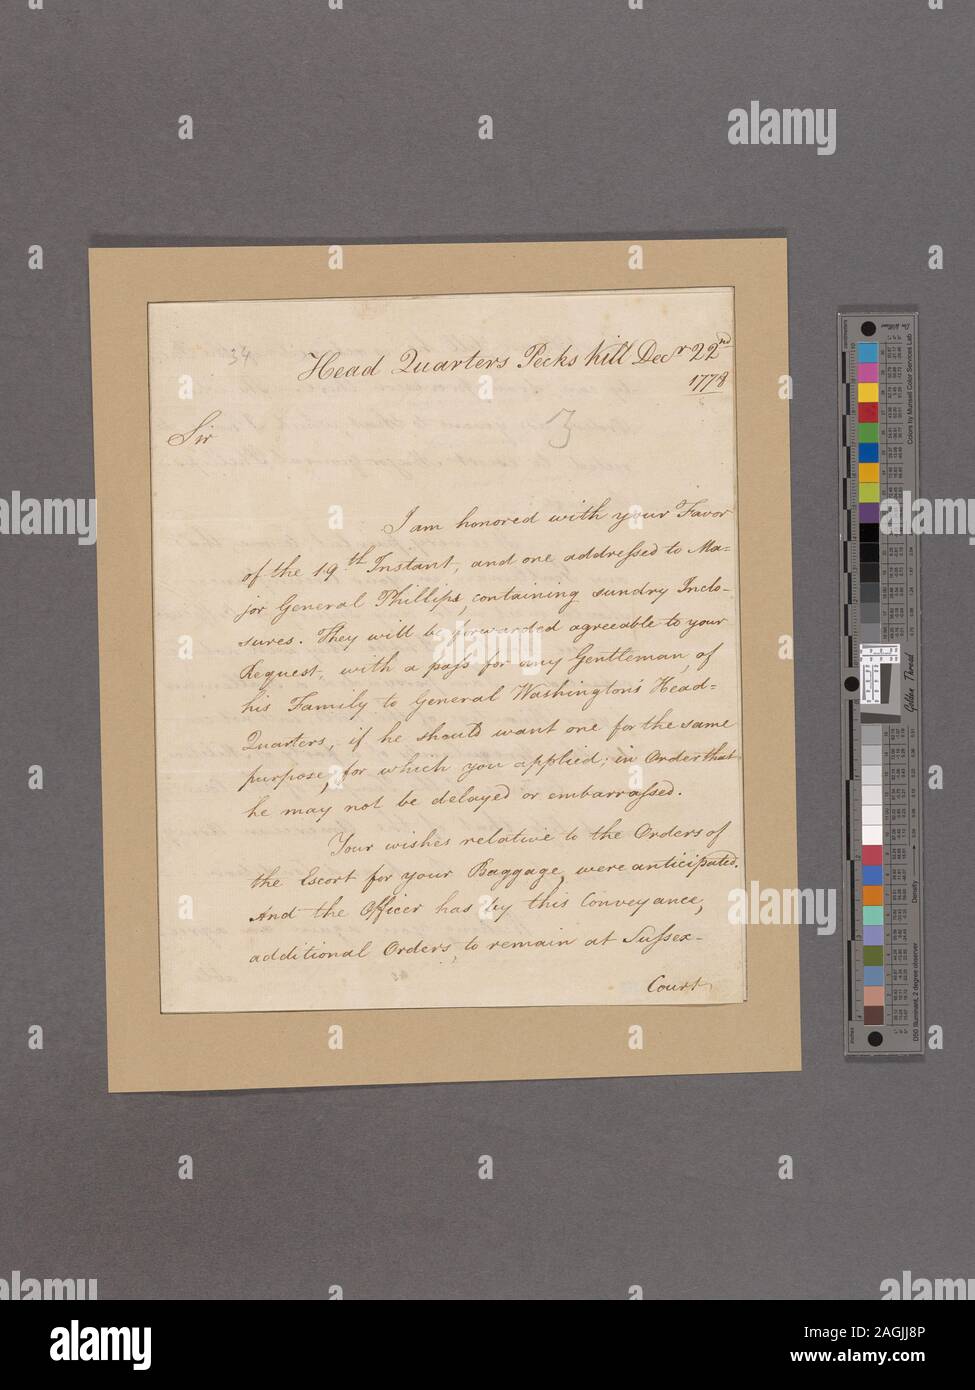 34
Head Quarters Pecks kill Decr 22nd
1778
3
Sir
I am honored with your Favor
of the 19th Instant, and one addressed to Ma=
jor General Phillips, containing sundry Inclo-
sures. They will be forwarded agreeable to your
Request, with a pass for any Gentleman, of
his Family to General Washington's Head=
Quarters, if he should want one for the same
purpose, for which you applied; in Order that
he may not be delayed or embarrassed.
Your wishes relative to the Orders of
the Escort for your Baggage, were anticipated.
And the Officer has by this Conveyance,
additional Orders, to remain at Sussex-
Court
Golden Thread
Colors by Munsell Color Services Lab
Density
D50 Illuminant, 2 degree observer
inches
centimeters
alamy
alamy
Image ID: 2AGJJ8P
www.alamy.com